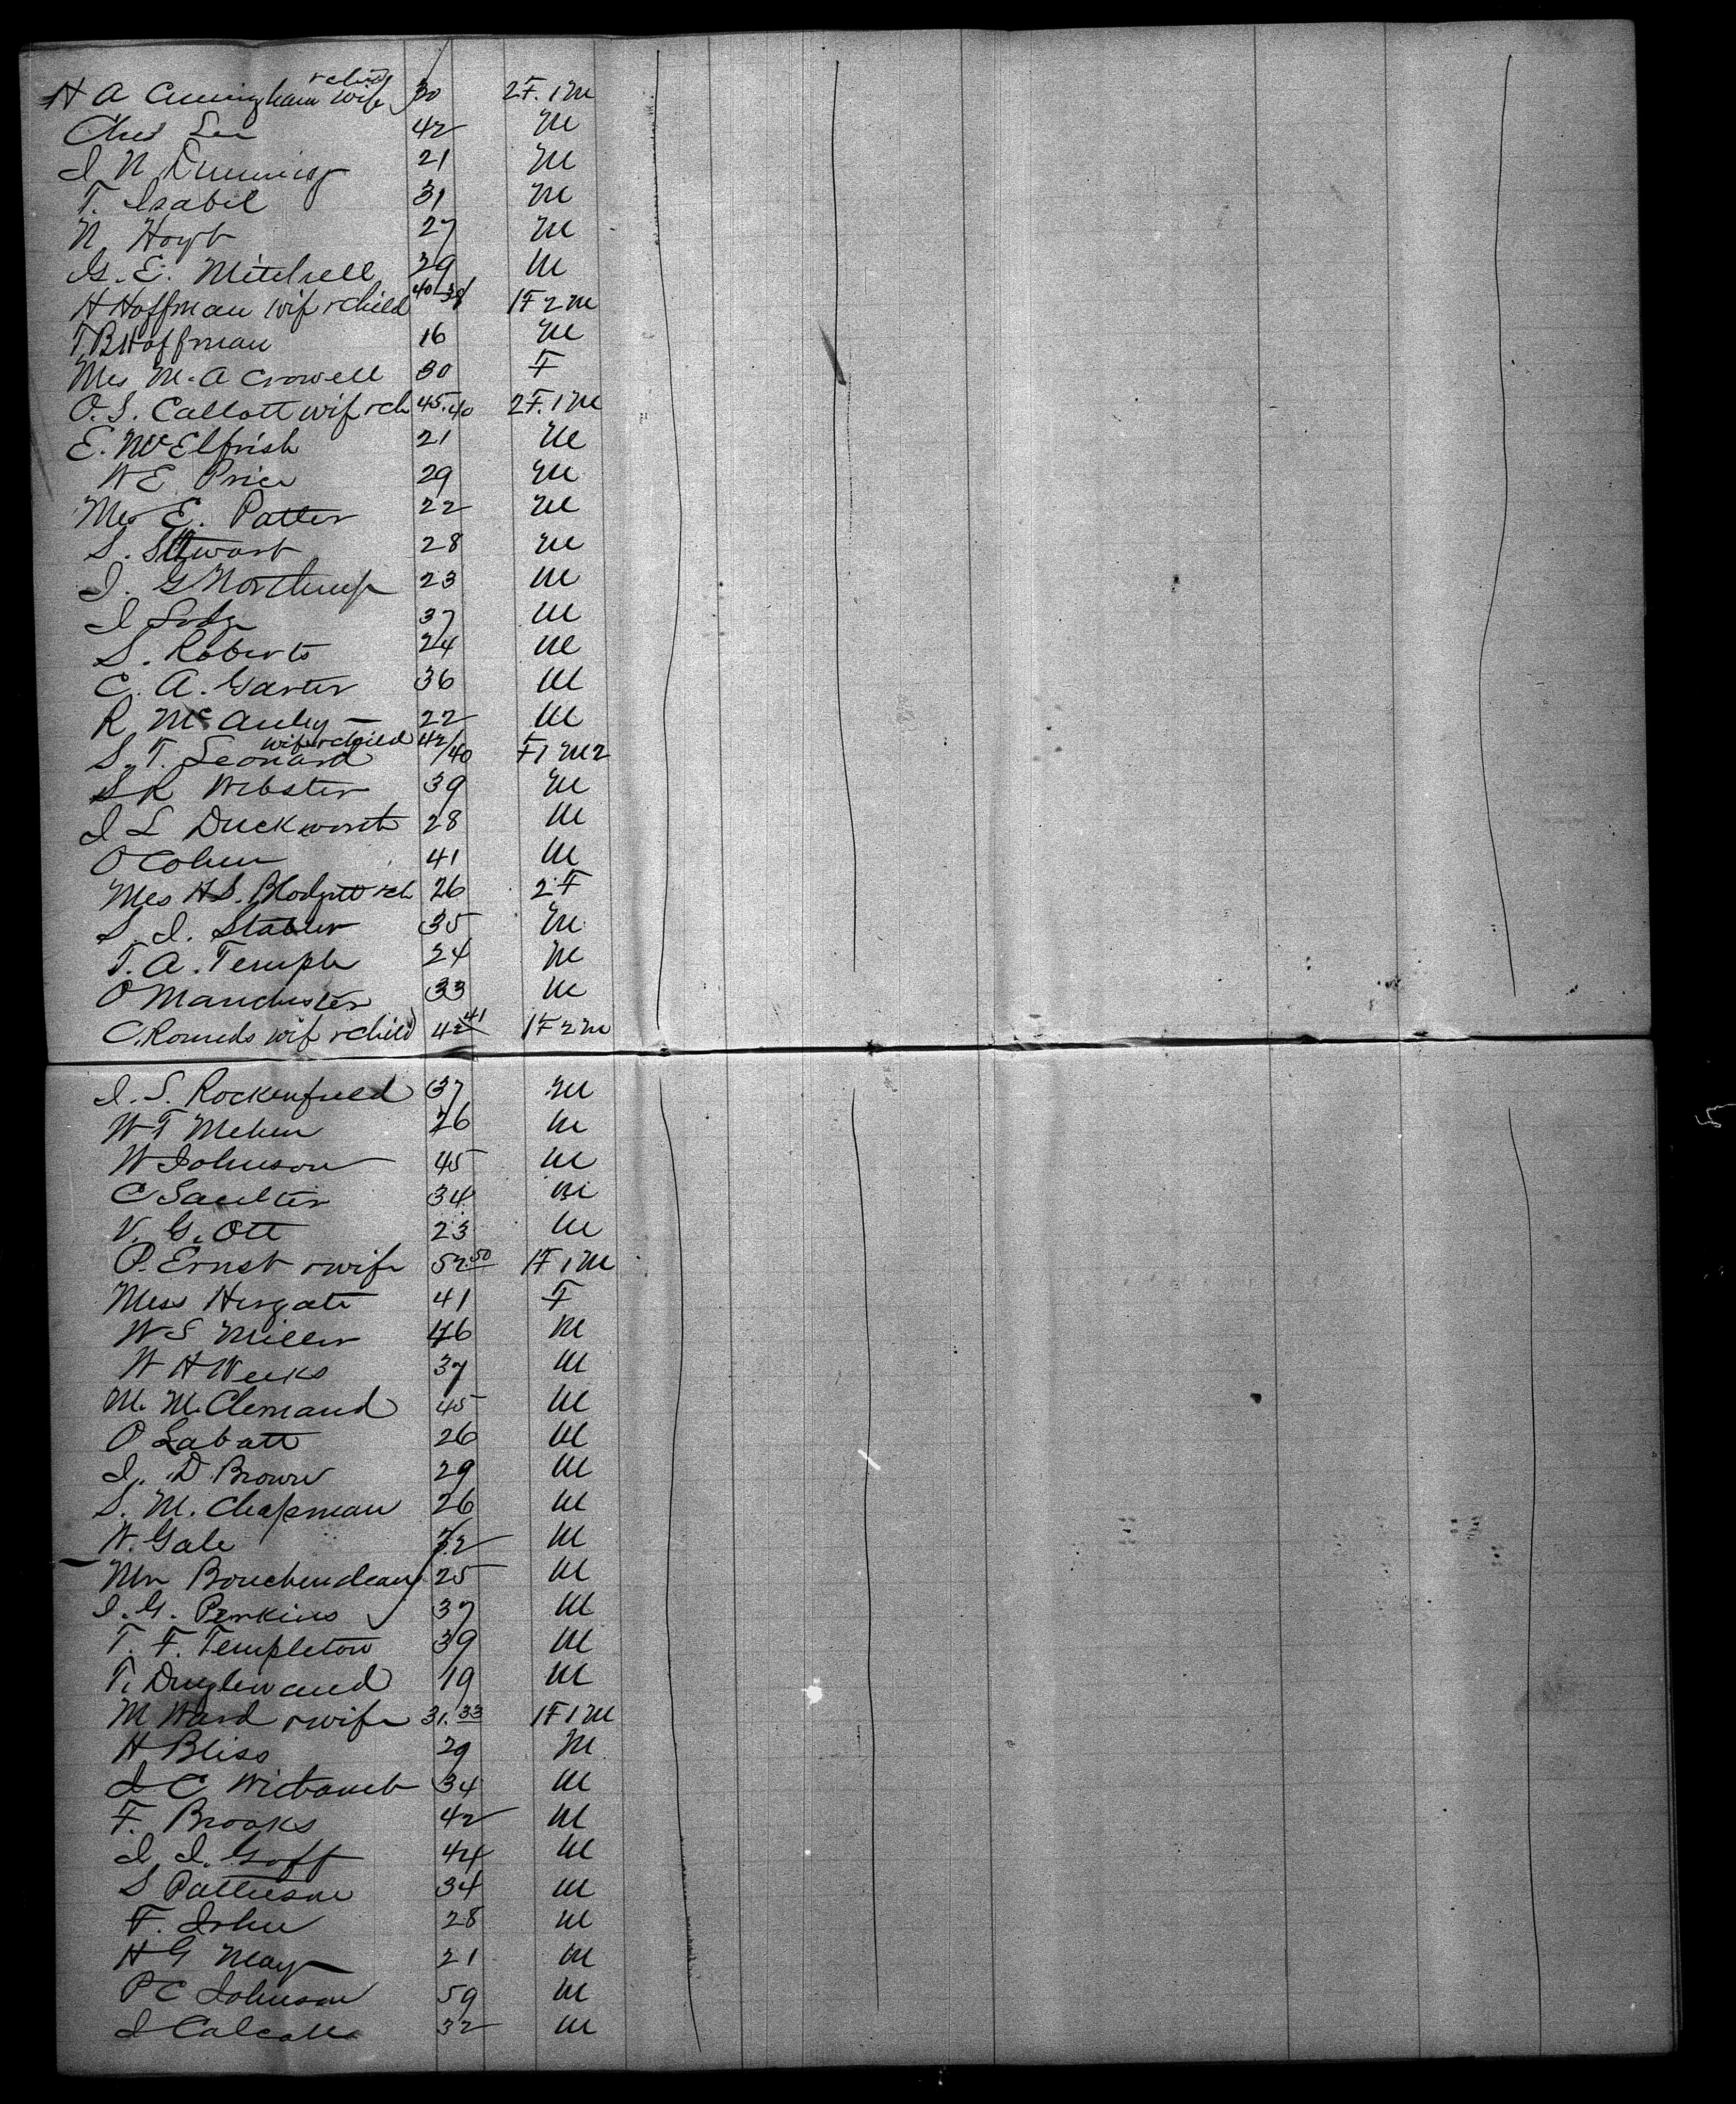 H A Cunningham wife & child 30 2F. 1M
Chas Lee 42 M
J N Dunning 21 M
T. Isabil 31 M
N Hoyt 27 M
G. E. Mitchell 29 M
H Hoffman wif & child 40 38 1F 2M
T. B Hoffman 16 M
Mrs M. A Crowell 30 F
O. S. Callott wif & ch 45.40 2F. 1M
E. McElfrish 21 M
W E Price 29 M
E. Patter 22 M
S. Stewart 28 M
J. G Northrup 23 M
J 37 M
S. Roberts 24 M
C. A. Garter 36 M
R McAuley 22 M
S. T. Leonard wif & child 42/40 F1 M2
S R Webster 39 M
J L Duckworth 28 M
O Cohen 41 M
Mrs H S. Blodgett & ch 26 2 F
S. J. Stabler 35 M
T. A. Temple 24 M
O Manchester 33 M
C. Rounds wif & child 42 41 1F 2M
J. S. Rockenfield 37 M
W T Mehen 26 M
W Johnson 45 M
C Saulter 34 M
V. G. Ott 23 M
P. Ernst & wife 52 50 1F 1M
Miss Hergate 41 F
W S Miller 46 M
W H Weeks 37 M
M. McClernand 45 M
O Labatt 26 M
J. D. Brown 29 M
S. M. Chapman 26 M
W. Gale 32 M
Mr Bouchendeau 25 M
J. G. Perkins 37 M
T. F. Templeton 39 M
T. 19 M
M Ward & wife 31. 33 1F 1M
H Bliss 29 M
J C 34 M
F. Brooks 42 M
J. J. Goff 44 M
S Pattieson 34 M
F. John 28 M
H G May 21 M
P C Johnson 59 M
J 32 M